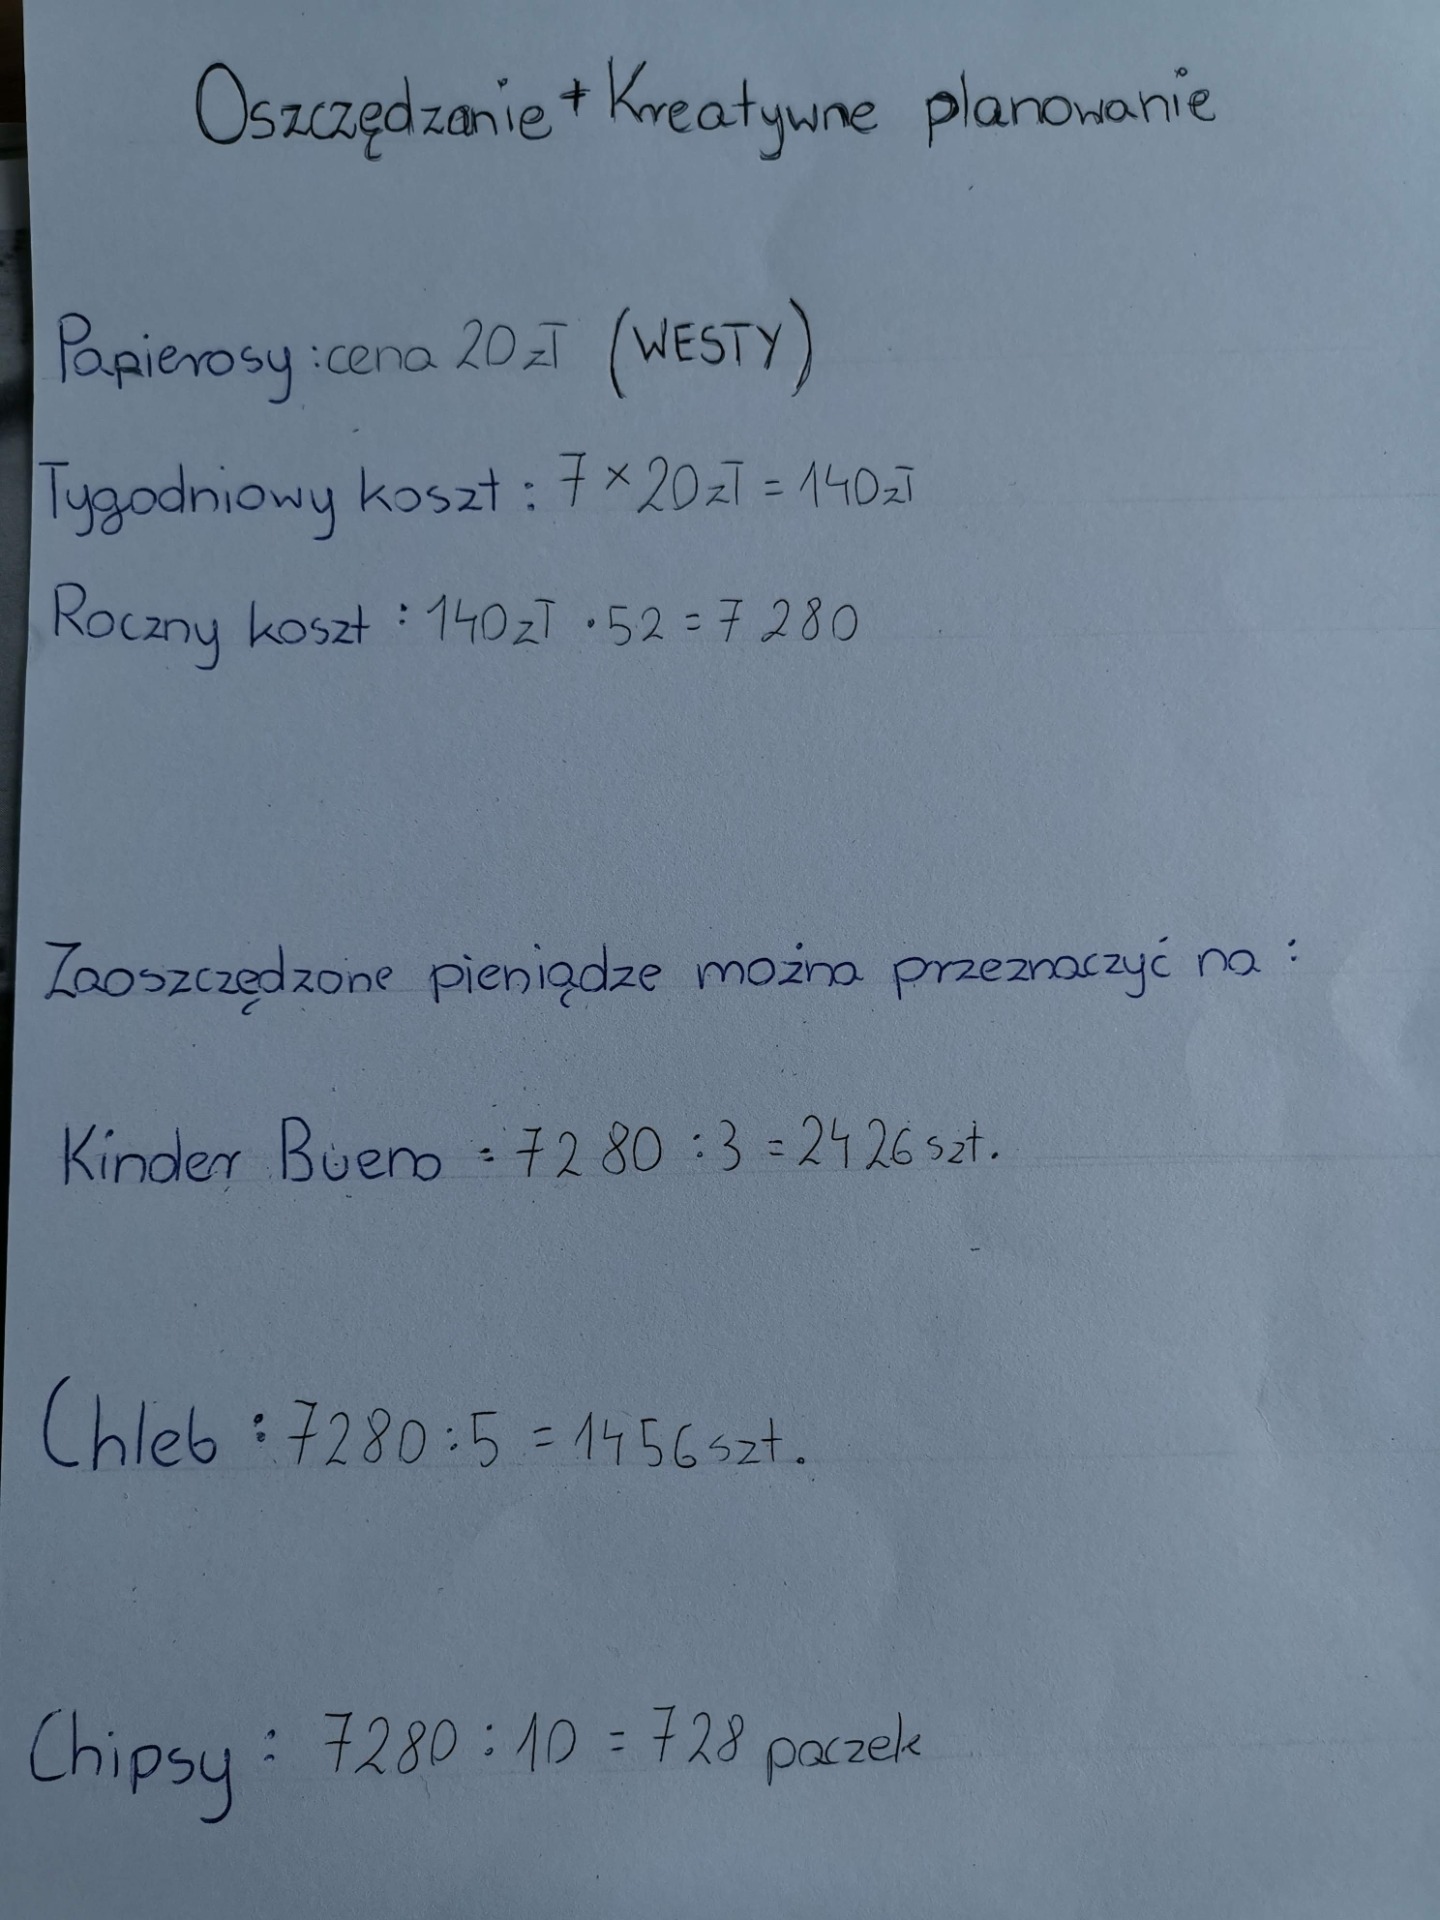 Oszczędzanie + Kreatywne planowanie
Papierosy : cena 20 zł (WESTY)
Tygodniowy koszt : 7 × 20 zł = 140 zł
Roczny koszt : 140 zł · 52 = 7 280
Zaoszczędzone pieniądze można przeznaczyć na :
Kinder Bueno = 7280 : 3 = 2426 szt.
Chleb : 7280 : 5 = 1456 szt.
Chipsy : 7280 : 10 = 728 paczek